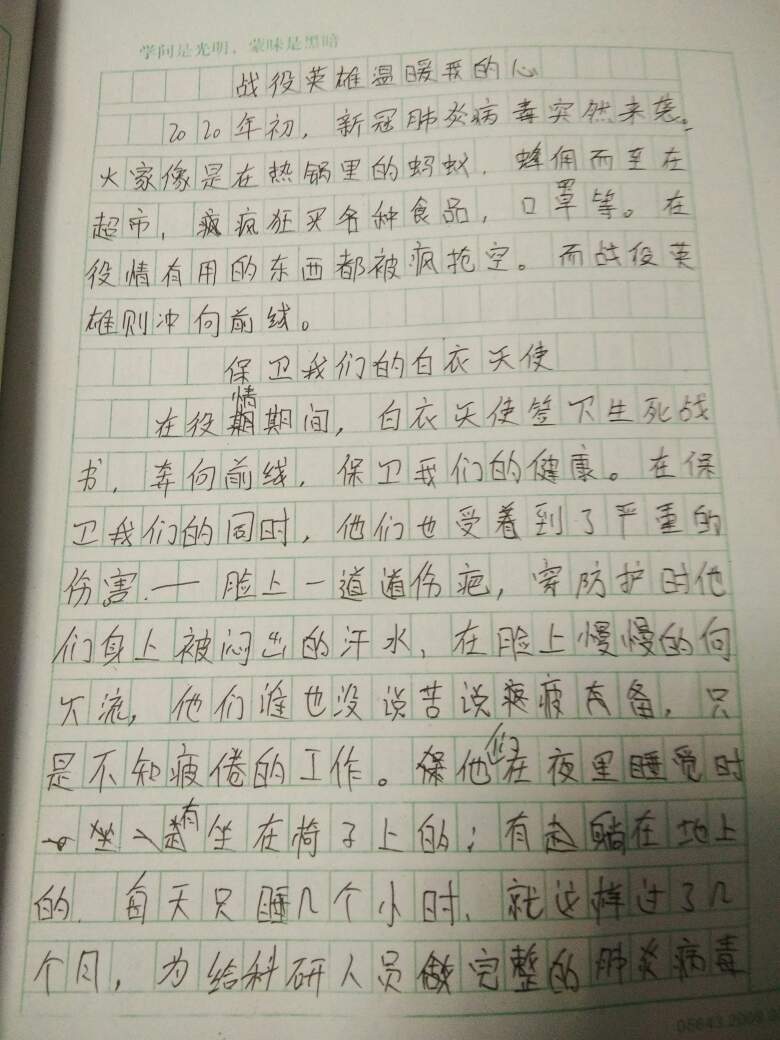 学问是光明，蒙昧是黑暗
战役英雄温暖我的心
2020年初，新冠肺炎病毒突然来袭。
大家像是在热锅里的蚂蚁，蜂佣而至在
超市，疯疯狂买各种食品，口罩等。在
役情有用的东西都被疯抢空。而战役英
雄则冲向前线。
保卫我们的白衣天使
在役情期间，白衣天使签下生死战
书，奔向前线，保卫我们的健康。在保
卫我们的同时，他们也受着到了严重的
伤害——脸上一道道伤疤，穿防护时他
们身上被闷出的汗水，在脸上慢慢的向
下流，他们谁也没说苦说疲备，只
是不知疲倦的工作。他们在夜里睡觉时
有坐在椅子上的；有躺在地上
的，每天只睡几个小时，就这样过了几
个月，为给科研人员做完整的肺炎病毒
05643.2009